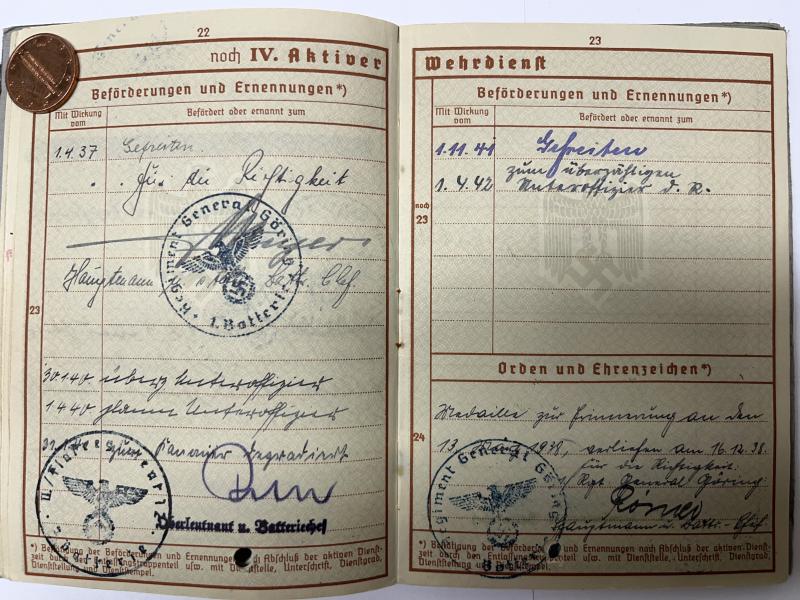 22
noch IV. Aktiver
Beförderungen und Ernennungen*)
Mit Wirkung vom
Befördert oder ernannt zum
1.4.37 Gefreiten
Für die Richtigkeit
Regiment General Göring
1. Batterie
Hauptmann u. Battr. Chef.
23
30.1.40. überz Unteroffizier
1 4 40 planm Unteroffizier
zum Kanonier degradiert
Oberleutnant u. Batteriechef
24
*) Bestätigung der Beförderungen und Ernennungen nach Abschluß der aktiven Dienst-
zeit durch den Entlassungstruppenteil usw. mit Dienststelle, Unterschrift, Dienstgrad,
Dienststellung und Dienststempel.
23
Wehrdienst
Beförderungen und Ernennungen*)
Mit Wirkung vom
Befördert oder ernannt zum
1.11.41 Gefreiten
zum überzähligen
1.4.42 Unteroffizier d. R.
noch
23
Orden und Ehrenzeichen*)
Medaille zur Erinnerung an den
13. März 1938, verliehen am 16.12.38.
für die Richtigkeit.
Rgt. General Göring
Regiment General Göring
Römer
Hauptmann u. Battr.-Chef.
24
*) Bestätigung der Beförderungen und Ernennungen nach Abschluß der aktiven Dienst-
zeit durch den Entlassungstruppenteil usw. mit Dienststelle, Unterschrift, Dienstgrad,
Dienststellung und Dienststempel.